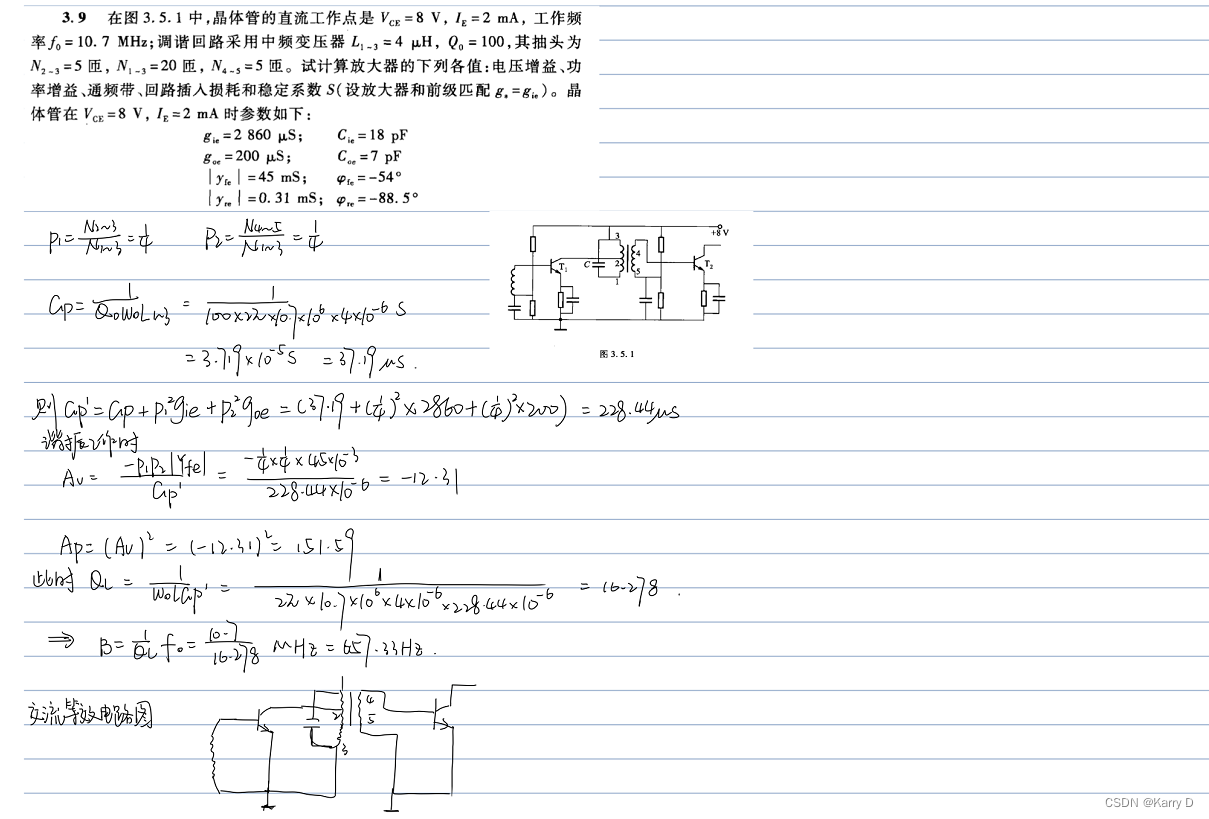 3.9 在图 3.5.1 中,晶体管的直流工作点是 V_CE = 8 V, I_E = 2 mA, 工作频
率 f₀ = 10.7 MHz;调谐回路采用中频变压器 L₁~₃ = 4 μH, Q₀ = 100,其抽头为
N₂₋₃ = 5 匝, N₁₋₃ = 20 匝, N₄₋₅ = 5 匝。试计算放大器的下列各值:电压增益、功
率增益、通频带、回路插入损耗和稳定系数 S(设放大器和前级匹配 g_s = g_ie)。晶
体管在 V_CE = 8 V, I_E = 2 mA 时参数如下:
g_ie = 2 860 μS; C_ie = 18 pF
g_oe = 200 μS; C_oe = 7 pF
|y_fe| = 45 mS; φ_fe = -54°
|y_re| = 0.31 mS; φ_re = -88.5°
P₁ = N₂~₃/N₁~₃ = 1/4 P₂ = N₄~₅/N₁~₃ = 1/4
+8 V
3
4
T₁
C
2
T₂
5
1
图 3.5.1
Gp = 1/(Q₀W₀L₁~₃) = 1/(100×2π×10.7×10⁶×4×10⁻⁶) S
= 3.719×10⁻⁵ S = 37.19 μS.
则 Gp' = Gp + P₁²gie + P₂²goe = (37.19 + (1/4)²×2860 + (1/4)²×200) = 228.44 μS
谐振工作时
Av = -P₁P₂|Yfe|/Gp' = -1/4×1/4×45×10⁻³/(228.44×10⁻⁶) = -12.31
Ap = (Av)² = (-12.31)² = 151.59
此时 QL = 1/(W₀LGp') = 1/(2π×10.7×10⁶×4×10⁻⁶×228.44×10⁻⁶) = 16.278.
⇒ B = 1/QL f₀ = 10.7/16.278 MHz = 657.33Hz.
交流等效电路图
1
4
2
5
3
CSDN @Karry D